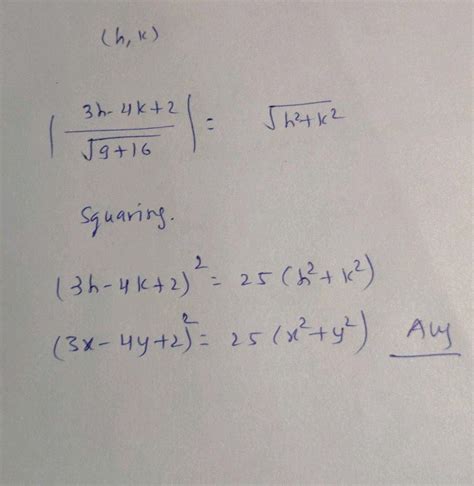 (h, k)
| 3h-4k+2 / √9+16 | = √h²+k²
Squaring.
(3h-4k+2)² = 25 (h²+k²)
(3x-4y+2)² = 25 (x²+y²) Ans